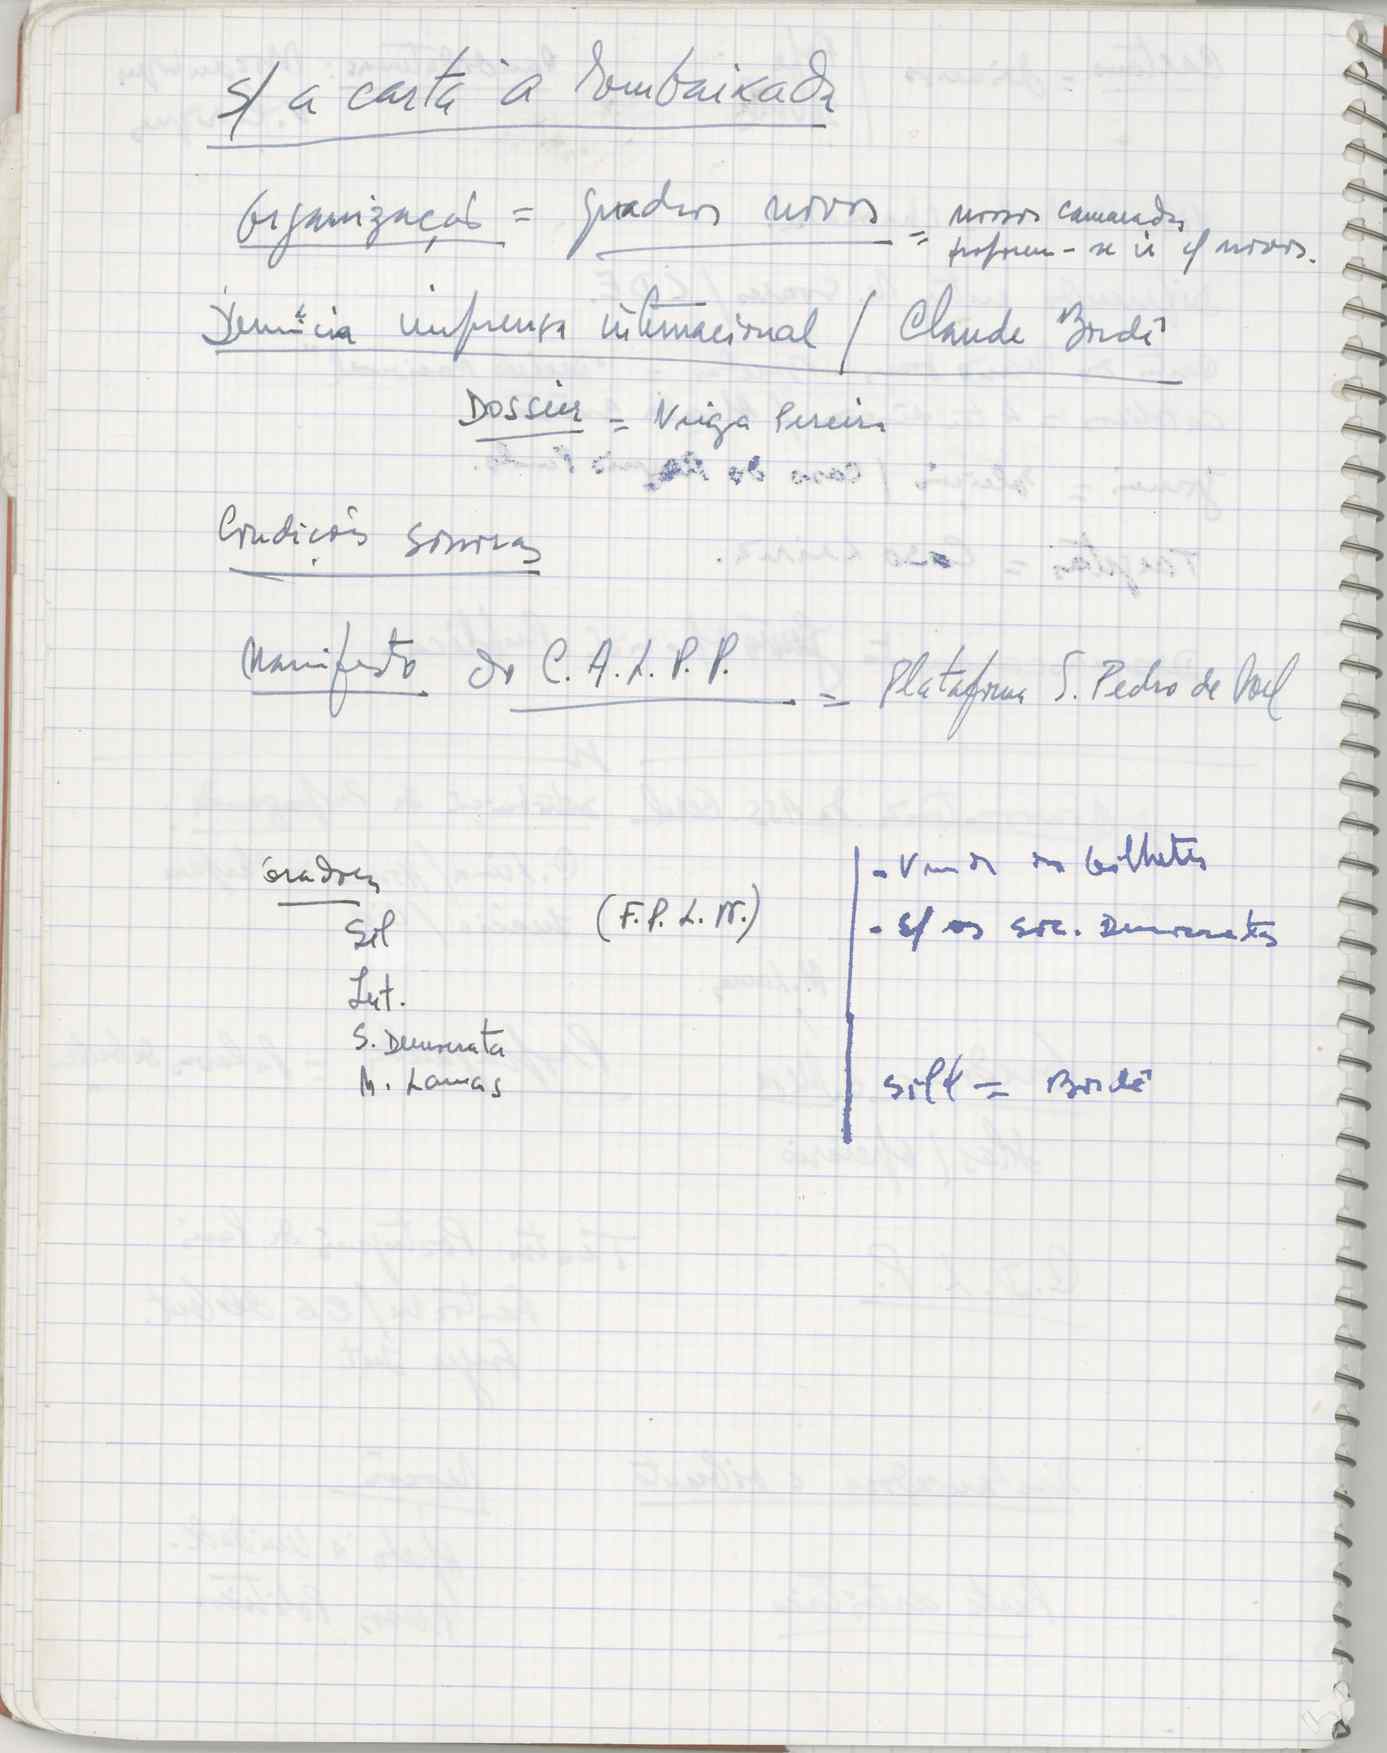 s/ a carta à Embaixada
Organização = quadros novos = nossos camaradas
propõem-se ir p/ novos.
Denúncia imprensa internacional / Claude Bordé
Dossier = Veiga Pereira
Condições sonoras
Manifesto do C. A. L. P. P. = Plataforma S. Pedro de Moel
oradores
Sil (F. P. L. N.)
Int.
S. Democrata
M. Lamas
- Venda dos bilhetes
- s/ os soc. Democratas
= Bordé